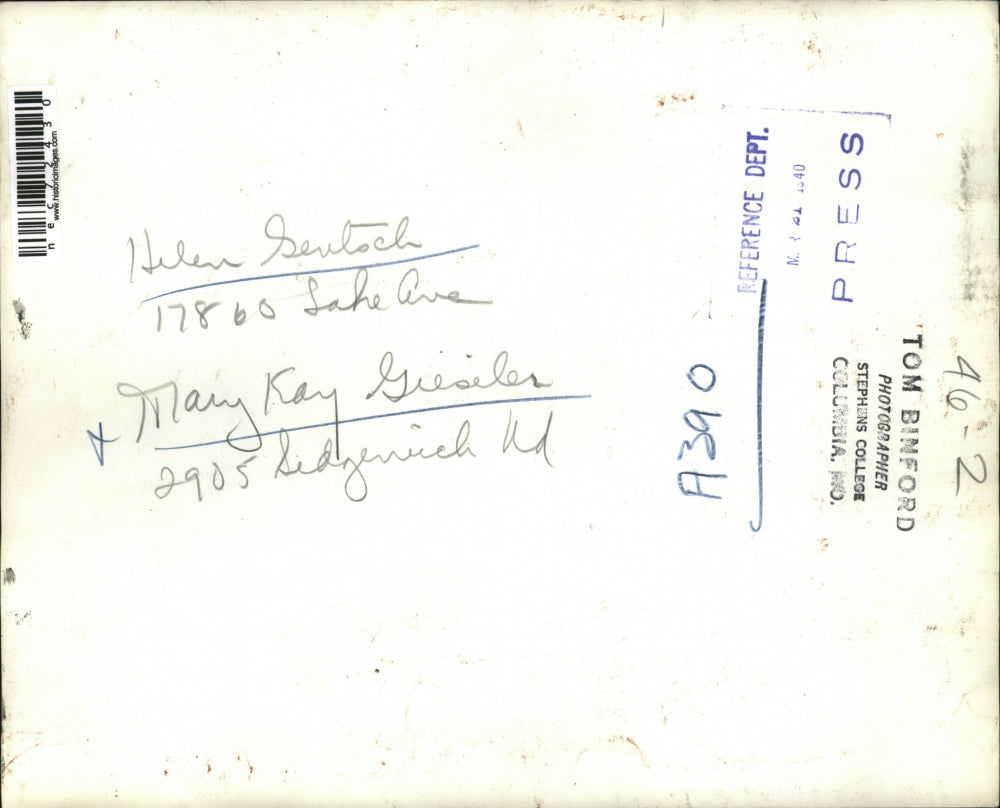 Helen Gentsch
17860 Lake Ave
Mary Kay Gieseler
2905 Sedgewick Rd
A390
REFERENCE DEPT.
1940
PRESS
TOM BINFORD
PHOTOGRAPHER
STEPHENS COLLEGE
COLUMBIA, MO.
46-2
nec72430
www.historicimages.com